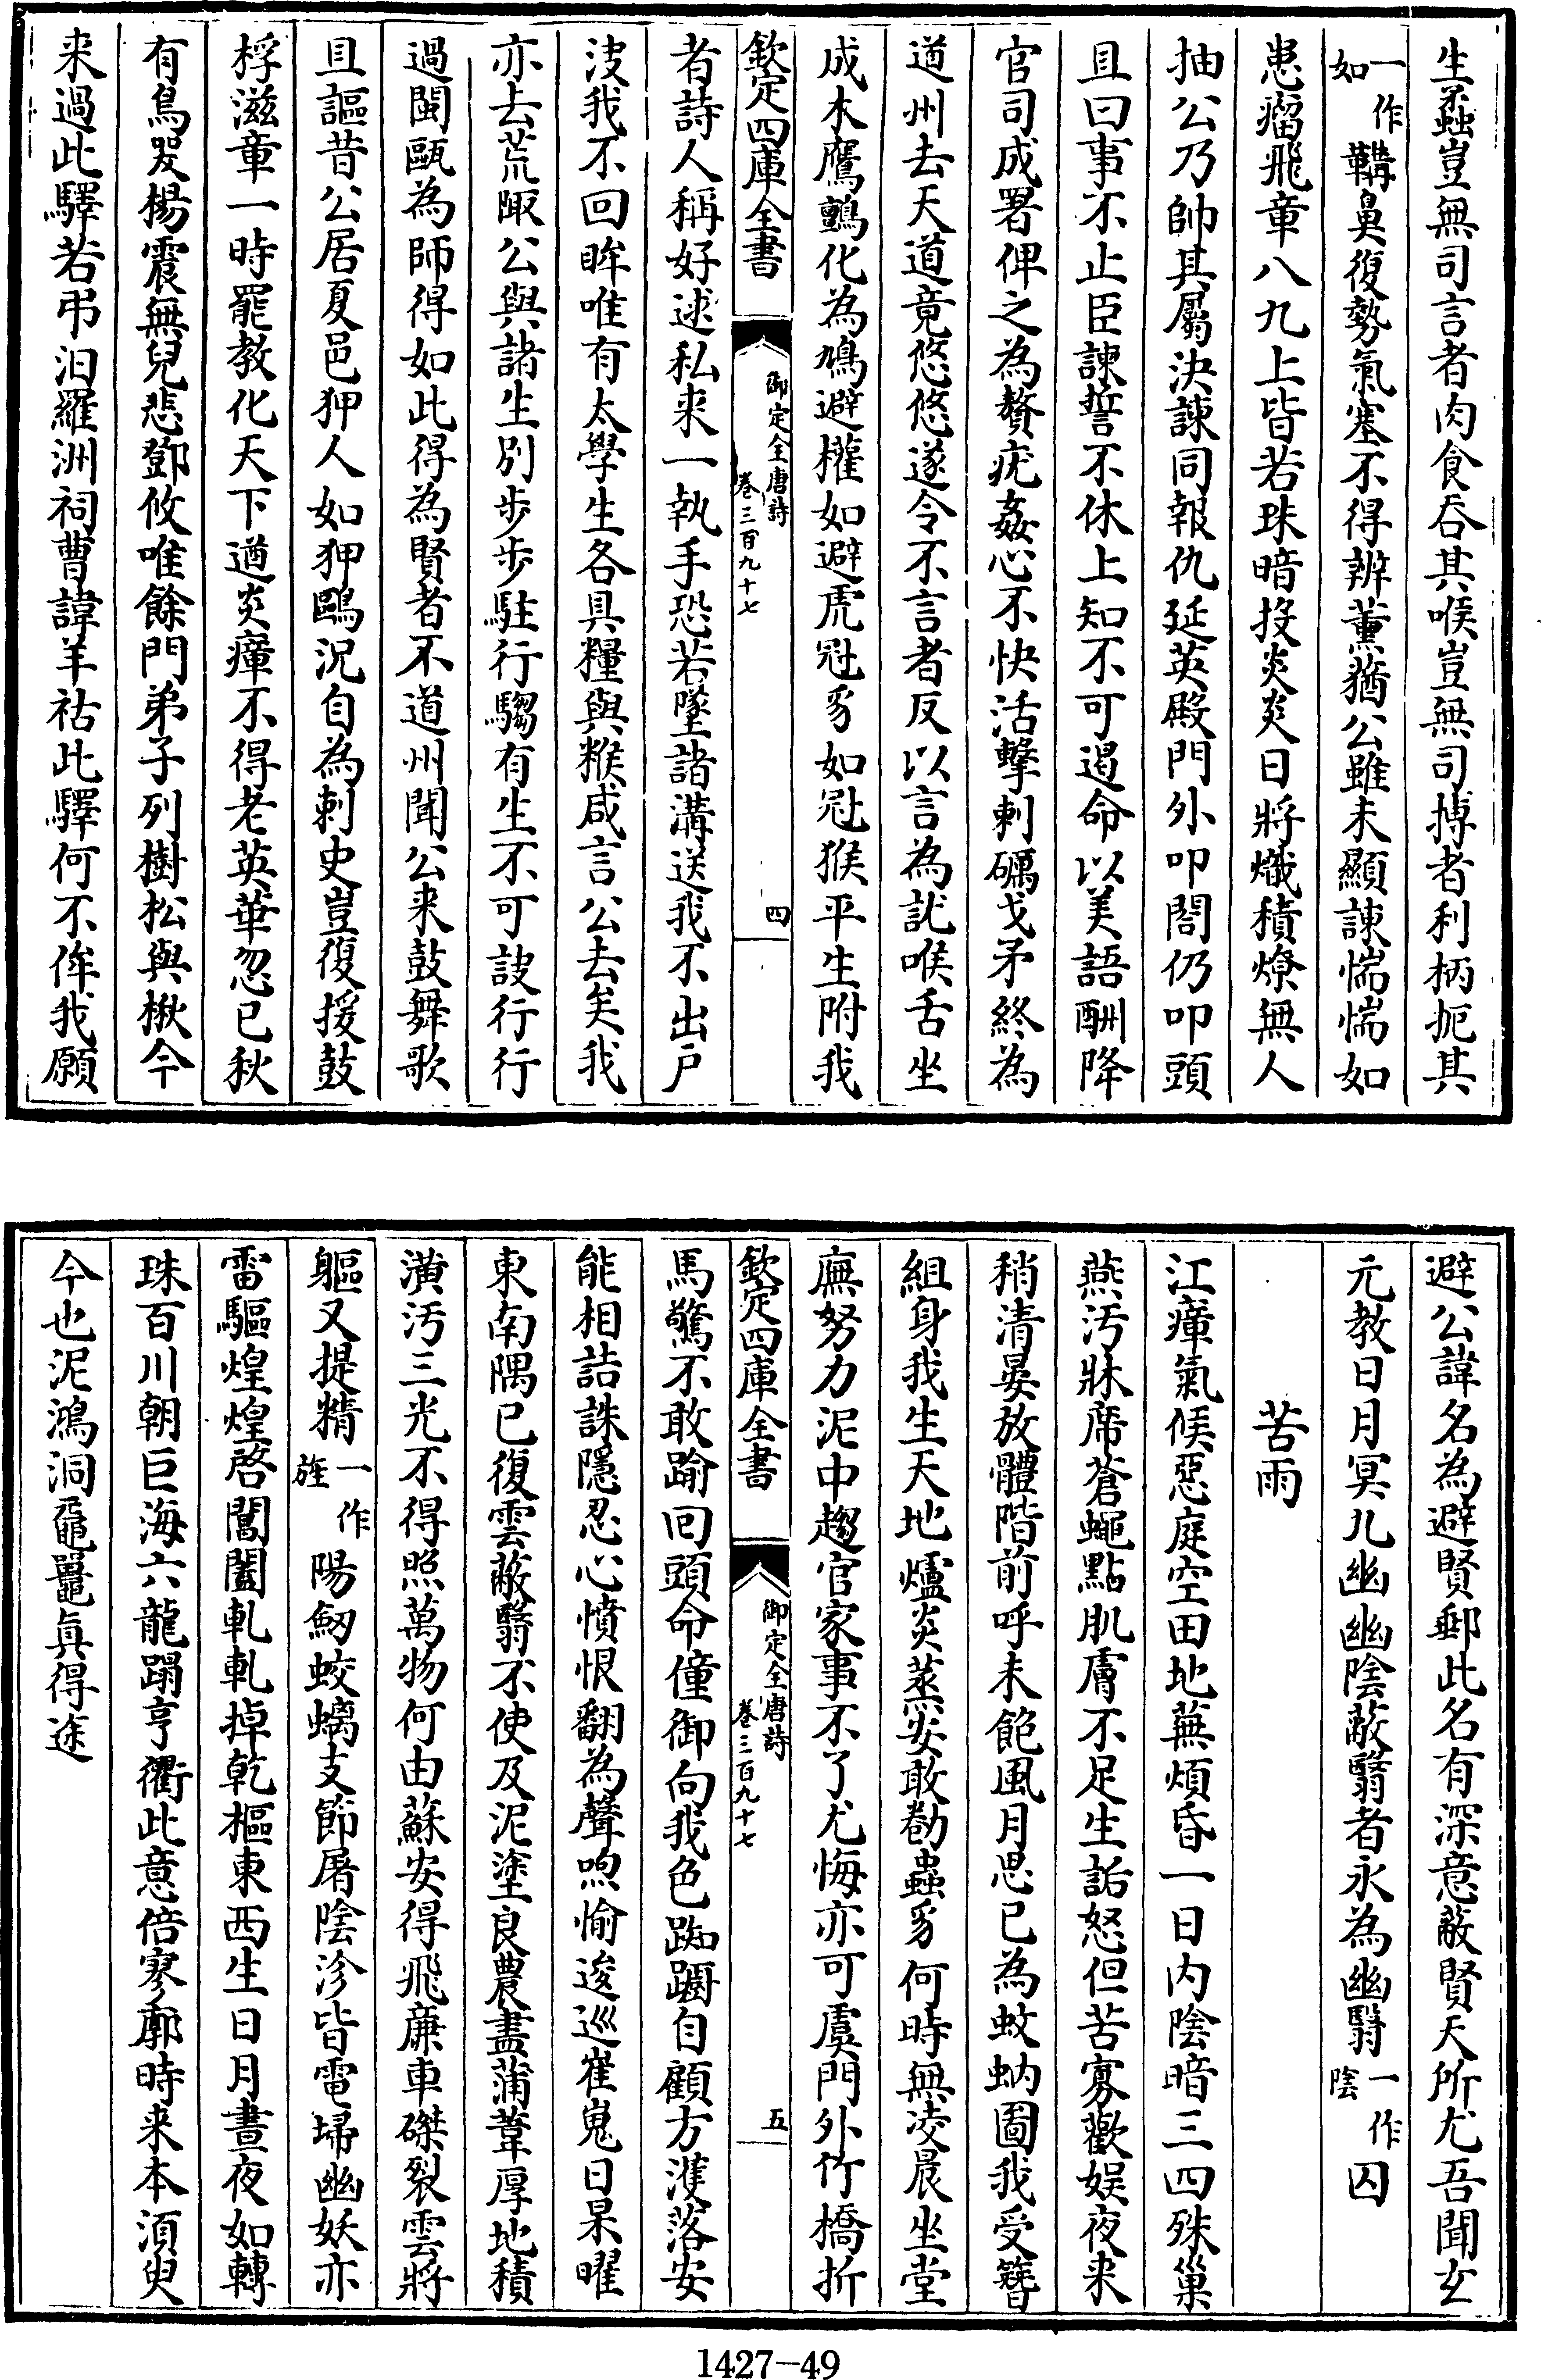 生蝨豈無司言者肉食吞其喉豈無司搏者利柄扼其
一作如鞲鼻復勢氣塞不得辨薰蕕公雖未顯諫惴惴如
患瘤飛章八九上皆若珠暗投炎炎日將熾積燎無人
抽公乃帥其屬決諫同報仇延英殿門外叩閤仍叩頭
且曰事不止臣諫誓不休上知不可遏命以美語酬降
官司成署俾之為贅疣姦心不快活擊刺礪戈矛終為
道州去天道竟悠悠遂令不言者反以言為訧喉舌坐
成木鷹鸇化為鳩避權如避虎冠豸如冠猴平生附我
欽定四庫全書
御定全唐詩
卷三百九十七
四
者詩人稱好逑私来一執手恐若墜諸溝送我不出戶
决我不回眸唯有太學生各具糧與糇咸言公去矣我
亦去荒陬公與諸生別步步駐行騶有生不可訣行行
過閩甌為師得如此得為賢者不道州聞公来鼓舞歌
且謳昔公居夏邑狎人如狎鷗況自為刺史豈復援鼓
桴滋章一時罷教化天下遒炎瘴不得老英華忽已秋
有鳥哭楊震無兒悲鄧攸唯餘門弟子列樹松與楸今
来過此驛若弔汨羅洲祠曹諱羊祜此驛何不侔我願
避公諱名為避賢郵此名有深意蔽賢天所尤吾聞玄
元教日月冥九幽幽陰蔽翳者永為幽翳一作陰囚
苦雨
江瘴氣候惡庭空田地蕪煩昏一日内陰暗三四殊巢
燕汚牀席蒼蠅點肌膚不足生詬怒但苦寡歡娱夜来
稍清晏放體階前呼未飽風月思已為蚊蚋圖我受簪
組身我生天地爐炎蒸安敢勌蟲豸何時無凌晨坐堂
廡努力泥中趨官家事不了尤悔亦可虞門外竹橋折
欽定四庫全書
御定全唐詩
卷三百九十七
五
馬驚不敢踰回頭命僮御向我色踟躕自顧方濩落安
能相詰誅隱忍心憤恨翻為聲喣愉逡巡崔嵬日杲曜
東南隅已復雲蔽翳不使及泥塗良農盡蒲葦厚地積
潢汚三光不得照萬物何由蘇安得飛廉車磔裂雲將
軀又提精一作旌陽劒蛟螭支節屠陰沴皆電埽幽妖亦
雷驅煌煌啓閶闔軋軋掉乾樞東西生日月晝夜如轉
珠百川朝巨海六龍蹋亨衢此意倍寥廓時来本須臾
今也泥鴻洞黿鼉眞得途
1427-49